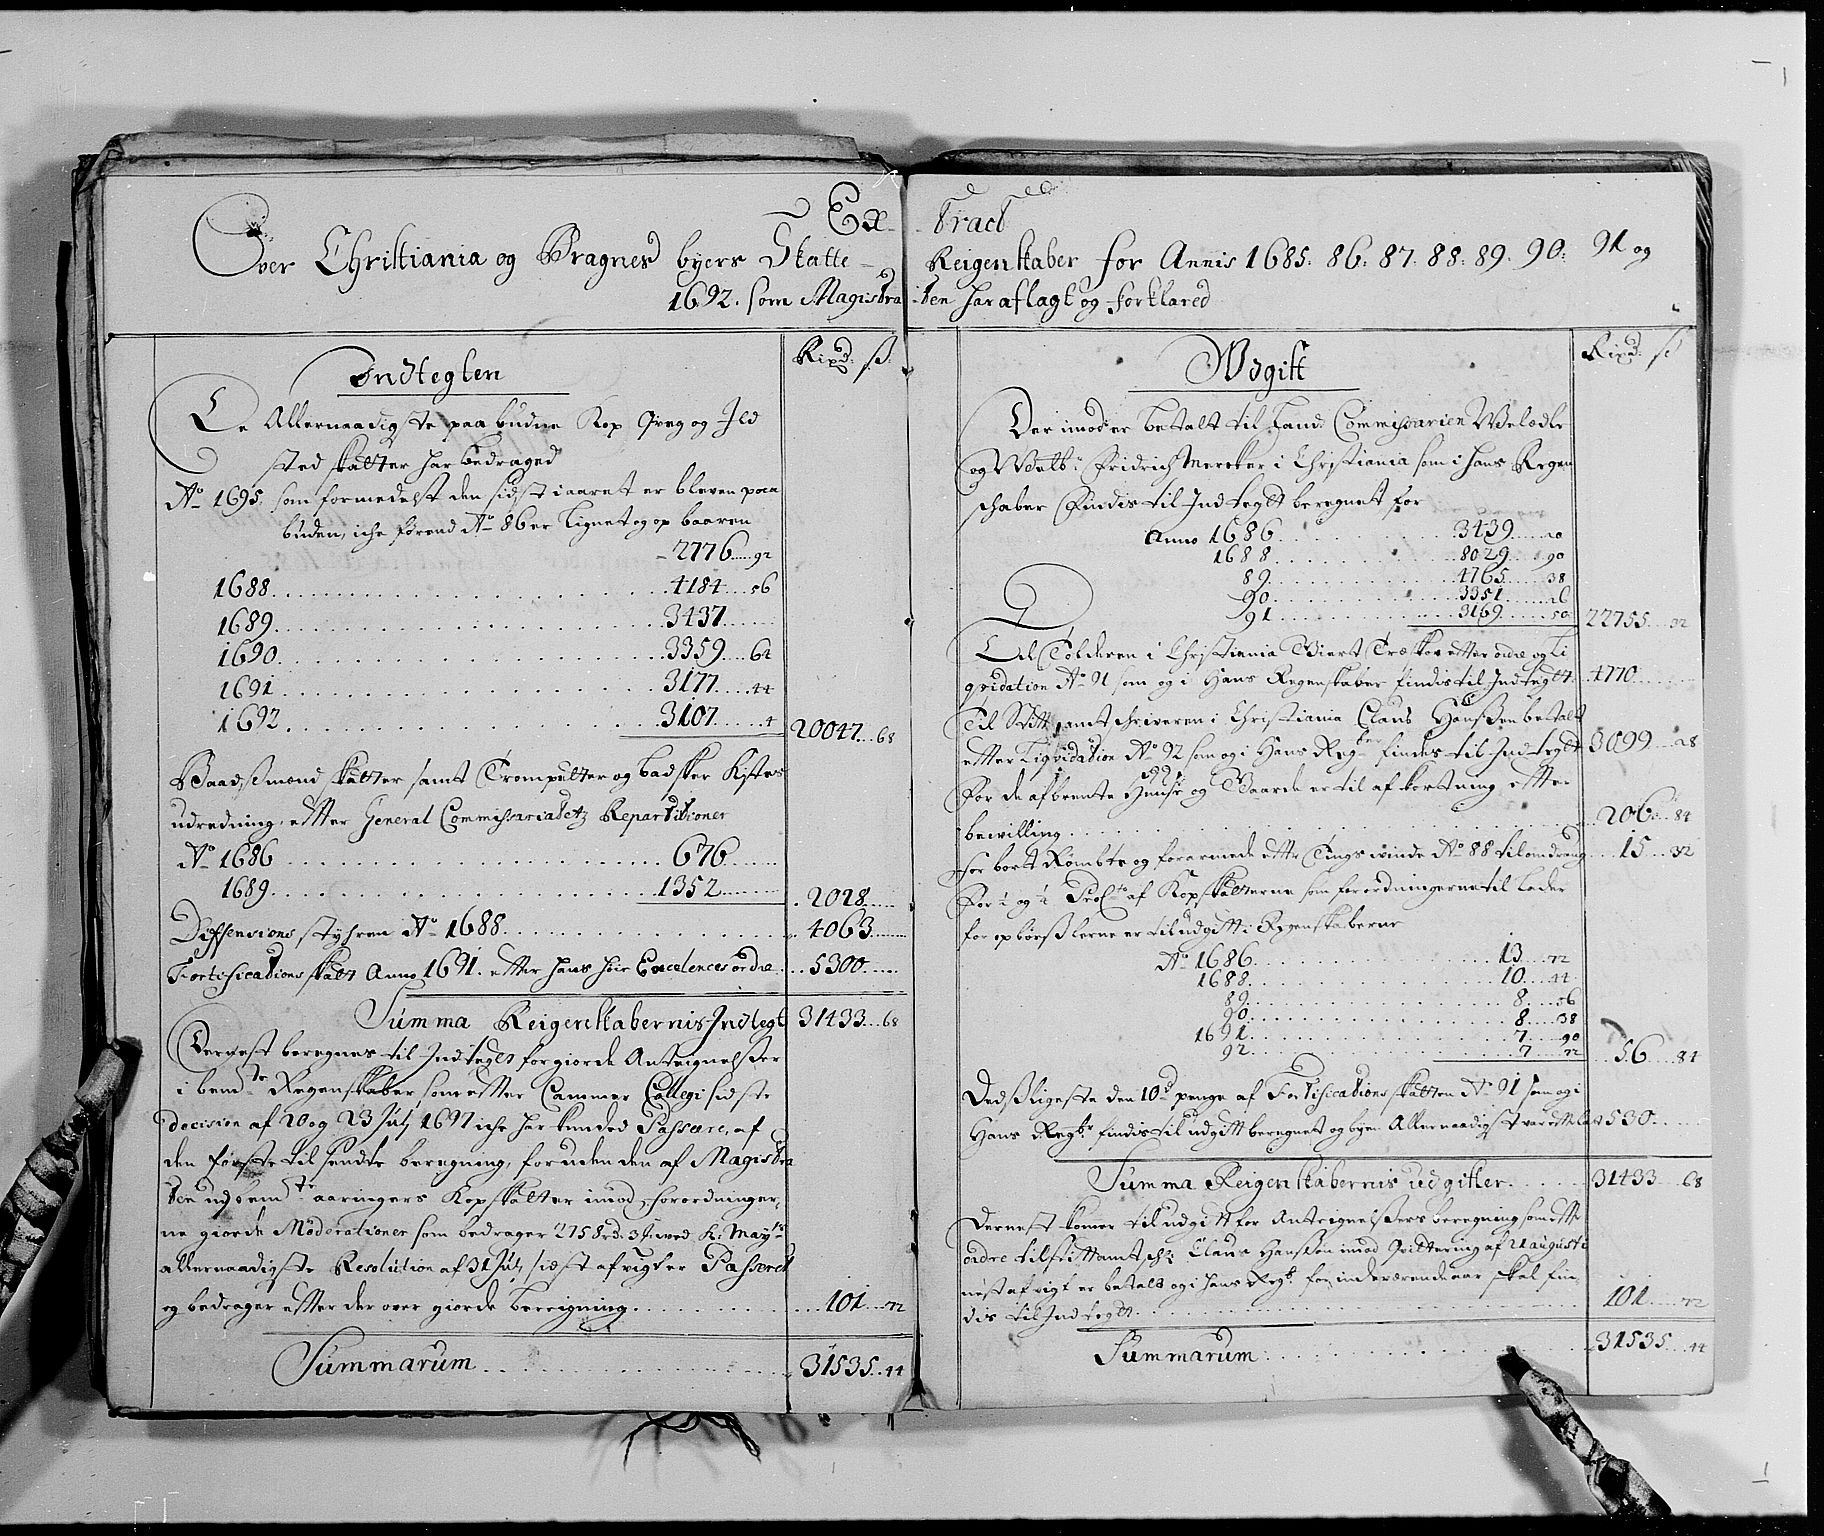 Ex- Tract
Over Christiania og Bragnes byers Skatte- Reigenskaber for Annis 1685. 86. 87. 88. 89. 90. 91 og
1692. som Magistra-ten har aflagt og forklared
Indtegten
Rixd: ß:
De Allernaadigste paabudne Kop Qveg og Ild
sted skatter har bedraged
Ao 1695. som formedelst den sidst i aaret er bleven paa
buden, iche førend Ao 86 er Lignet og op baaren
2776 92
1688 4184 56
1689 3437
1690 3359 64
1691 3177 44
1692 3107 4
20047 68
Baadsmænd skatter samt Trompetter og badsker Kistes
udredning, etter General Commissariadetz Repartitioner
Ao 1686 676
1689 1352
2028
Diffensions styhren Ao 1688 4063
Fortifications skatt Anno 1691. etter hans høie Excelences ordre 5300
Summa Reigenskabernis Indtegt 31433 68
Dernest beregnes til Indtegt forgiorde Anteignelsser
i bemte Regenskaber, som etter Cammer Collegi sidste
decision af 20 og 23 July 1697 iche har kunded Passere, af
den første til sendte beregning, foruden den af Magistra
ten ud aaringers Kopskatter imod forordninger,
ne giorde Moderationer som bedrager 2758 rd. 3 ß. wed K: Mayts
allernaadigste Resolution af 31 July sidst afvigt er Passeret
og bedrager etter der over giorde bereigning 101 72
Summarum 31535 44
Udgift
Rixd: ß
Der imod er betalt til Land Commissarien Welædle
og Welb: Fridrich Mercker i Christiania som i hans Regen
schaber findis til Indtegt beregnett for
Anno 1686 3439 20
1688 8029 90
89 4765 38
90 3351 26
91 3169 50
22755 32
Til Tolderen i Christiania etter ordre og Li
qvidation Ao 91 som og i Hans Regenskaber findis til Indtegt 4770
Til Stiftamtschriveren i Christiania Claus Hanssen betalt
etter Liqvidation Ao 92 som og i Hans Regsker findes til Indtegt 3099 28
For de afbrente Huuse og Gaarde er til afkortning etter
bevilling 206 84
For bort Rømbte og forarmede etter Tings winde Ao 88 15 32
For 1/2 og 1/4 ProCto af Kopskatterne som forordningerne til lader
for opbørslerne er til udgift i Regenskaberne
Ao 1686 13 72
1688 10 44
89 8 56
90 8 38
1691 7 90
92 7 72
56 84
Dedsligeste den 10d penge af Fortificationsskatten Ao 91 som og i
Hans Regskr findis til udgift beregnet og byen Allernaadigst var 530
Summa Reigenskabernis udgifter 31433 68
Dernest komer til udgift for Anteignelssers beregning som etter
ordre til stiftamtsch: Claus Hanssen imod Qvittering af 21 augusti
nest afvigt er betalt og i hans Regsk: for indeværende aar skal fin
dis til Indtegt 101 72
Summarum 31535 44